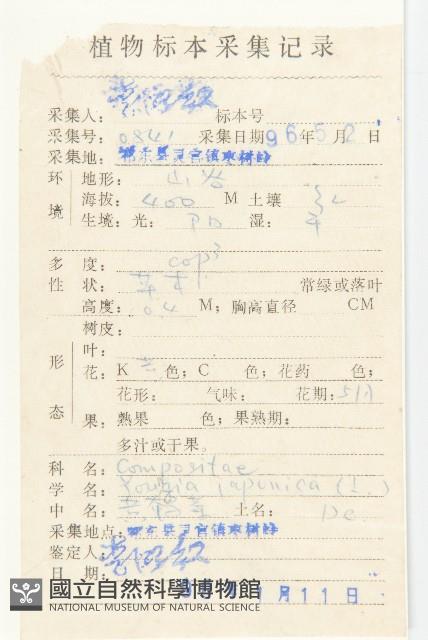 植物标本采集记录
采集人: 标本号
采集号: 0841 采集日期 96年5月2日
采集地:
环境 地形: 山谷
海拔: 400 M 土壤
生境: 光: 湿: 干
多度: cop³
性状: 草本 常绿或落叶
高度: 0.4 M; 胸高直径 CM
树皮:
形态 叶:
花: K 色; C 色; 花药 色;
花形: 气味: 花期: 5月
果: 熟果 色; 果熟期:
多汁或干果。
科名: Compositae
学名: Youngia japonica (L.)
中名: 土名: DC.
采集地点:
鉴定人:
日期: 月11日
國立自然科學博物館
NATIONAL MUSEUM OF NATURAL SCIENCE